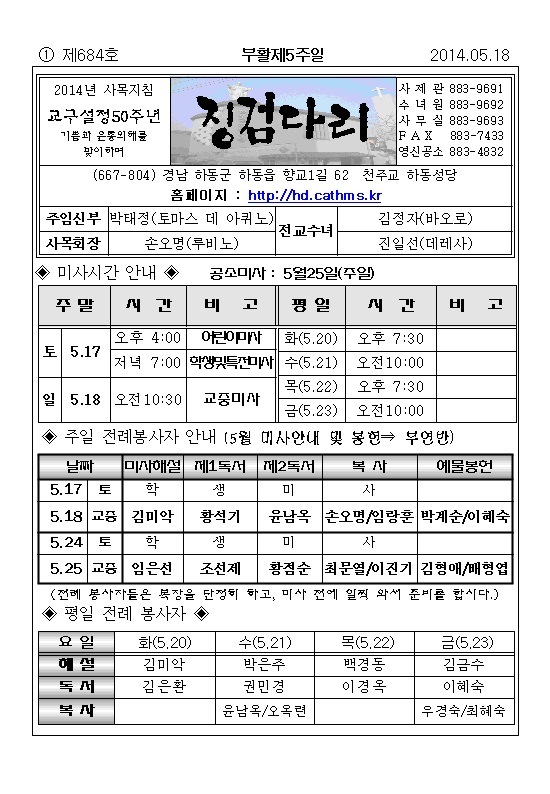 ① 제684호 부활제5주일 2014.05.18
2014년 사목지침
교구설정50주년
기쁨과 은총의해를
맞이하며
징검다리
사 제 관 883-9691
수 녀 원 883-9692
사 무 실 883-9693
F A X 883-7433
영신공소 883-4832
(667-804) 경남 하동군 하동읍 향교1길 62 천주교 하동성당
홈페이지 : http://hd.cathms.kr
주임신부 박태정(토마스 데 아퀴노) 전교수녀 김정자(바오로)
사목회장 손오명(루비노) 진일선(데레사)
◈ 미사시간 안내 ◈ 공소미사 : 5월25일(주일)
주 말 시 간 비 고 평 일 시 간 비 고
토 5.17 오후 4:00 어린이미사 화(5.20) 오후 7:30
저녁 7:00 학생및특전미사 수(5.21) 오전10:00
일 5.18 오전10:30 교중미사 목(5.22) 오후 7:30
금(5.23) 오전10:00
◈ 주일 전례봉사자 안내 (5월 미사안내 및 봉헌⇒ 부연반)
날짜 미사해설 제1독서 제2독서 복 사 예물봉헌
5.17 토 학 생 미 사
5.18 교중 김미악 황석기 윤남옥 손오명/임랑훈 박계순/이혜숙
5.24 토 학 생 미 사
5.25 교중 임은선 조선제 황점순 최문열/이진기 김형애/배형엽
(전례 봉사자들은 복장을 단정히 하고, 미사 전에 일찍 와서 준비를 합시다.)
◈ 평일 전례 봉사자 ◈
요 일 화(5.20) 수(5.21) 목(5.22) 금(5.23)
해 설 김미악 박은주 백경동 김금수
독 서 김은환 권민경 이경옥 이혜숙
복 사 윤남옥/오옥련 우경숙/최혜숙